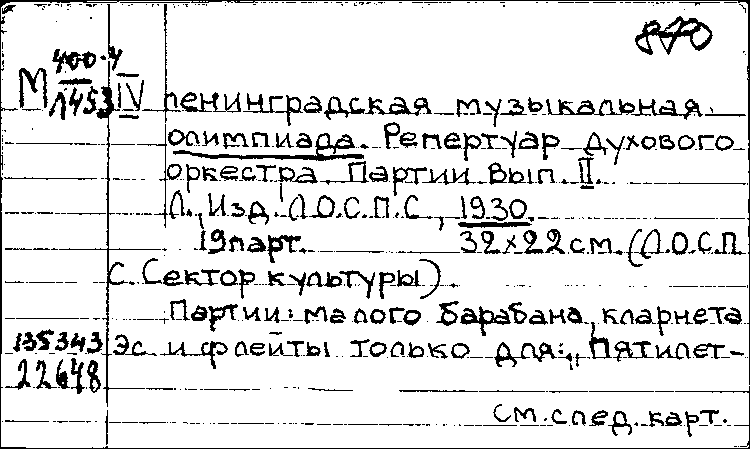 870
М 400-4
Л453 IV Ленинградская музыкальная
олимпиада. Репертуар духового
оркестра. Партии. Вып. II.
Л., Изд. Л.О.С.П.С, 1930.
19 парт. 32×22 см. (Л.О.С.П.
С. Сектор культуры).
Партии: малого барабана, кларнета
135343 Эс и флейты только для: „Пятилет-
22648
см. след. карт.